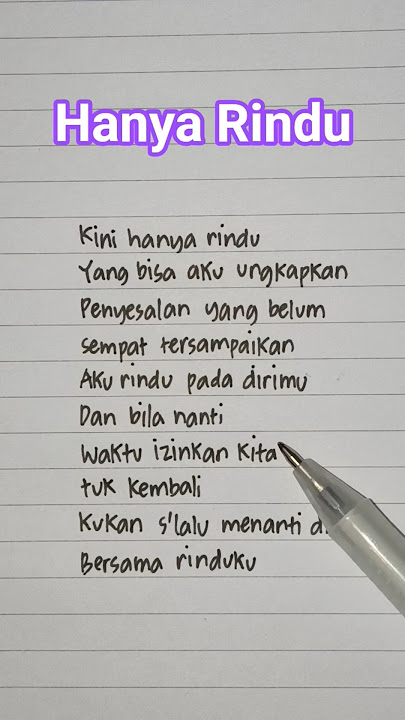 Hanya Rindu
Kini hanya rindu
Yang bisa aku ungkapkan
Penyesalan yang belum
sempat tersampaikan
Aku rindu pada dirimu
Dan bila nanti
Waktu izinkan kita
tuk kembali
Kukan s'lalu menanti
Bersama rinduku